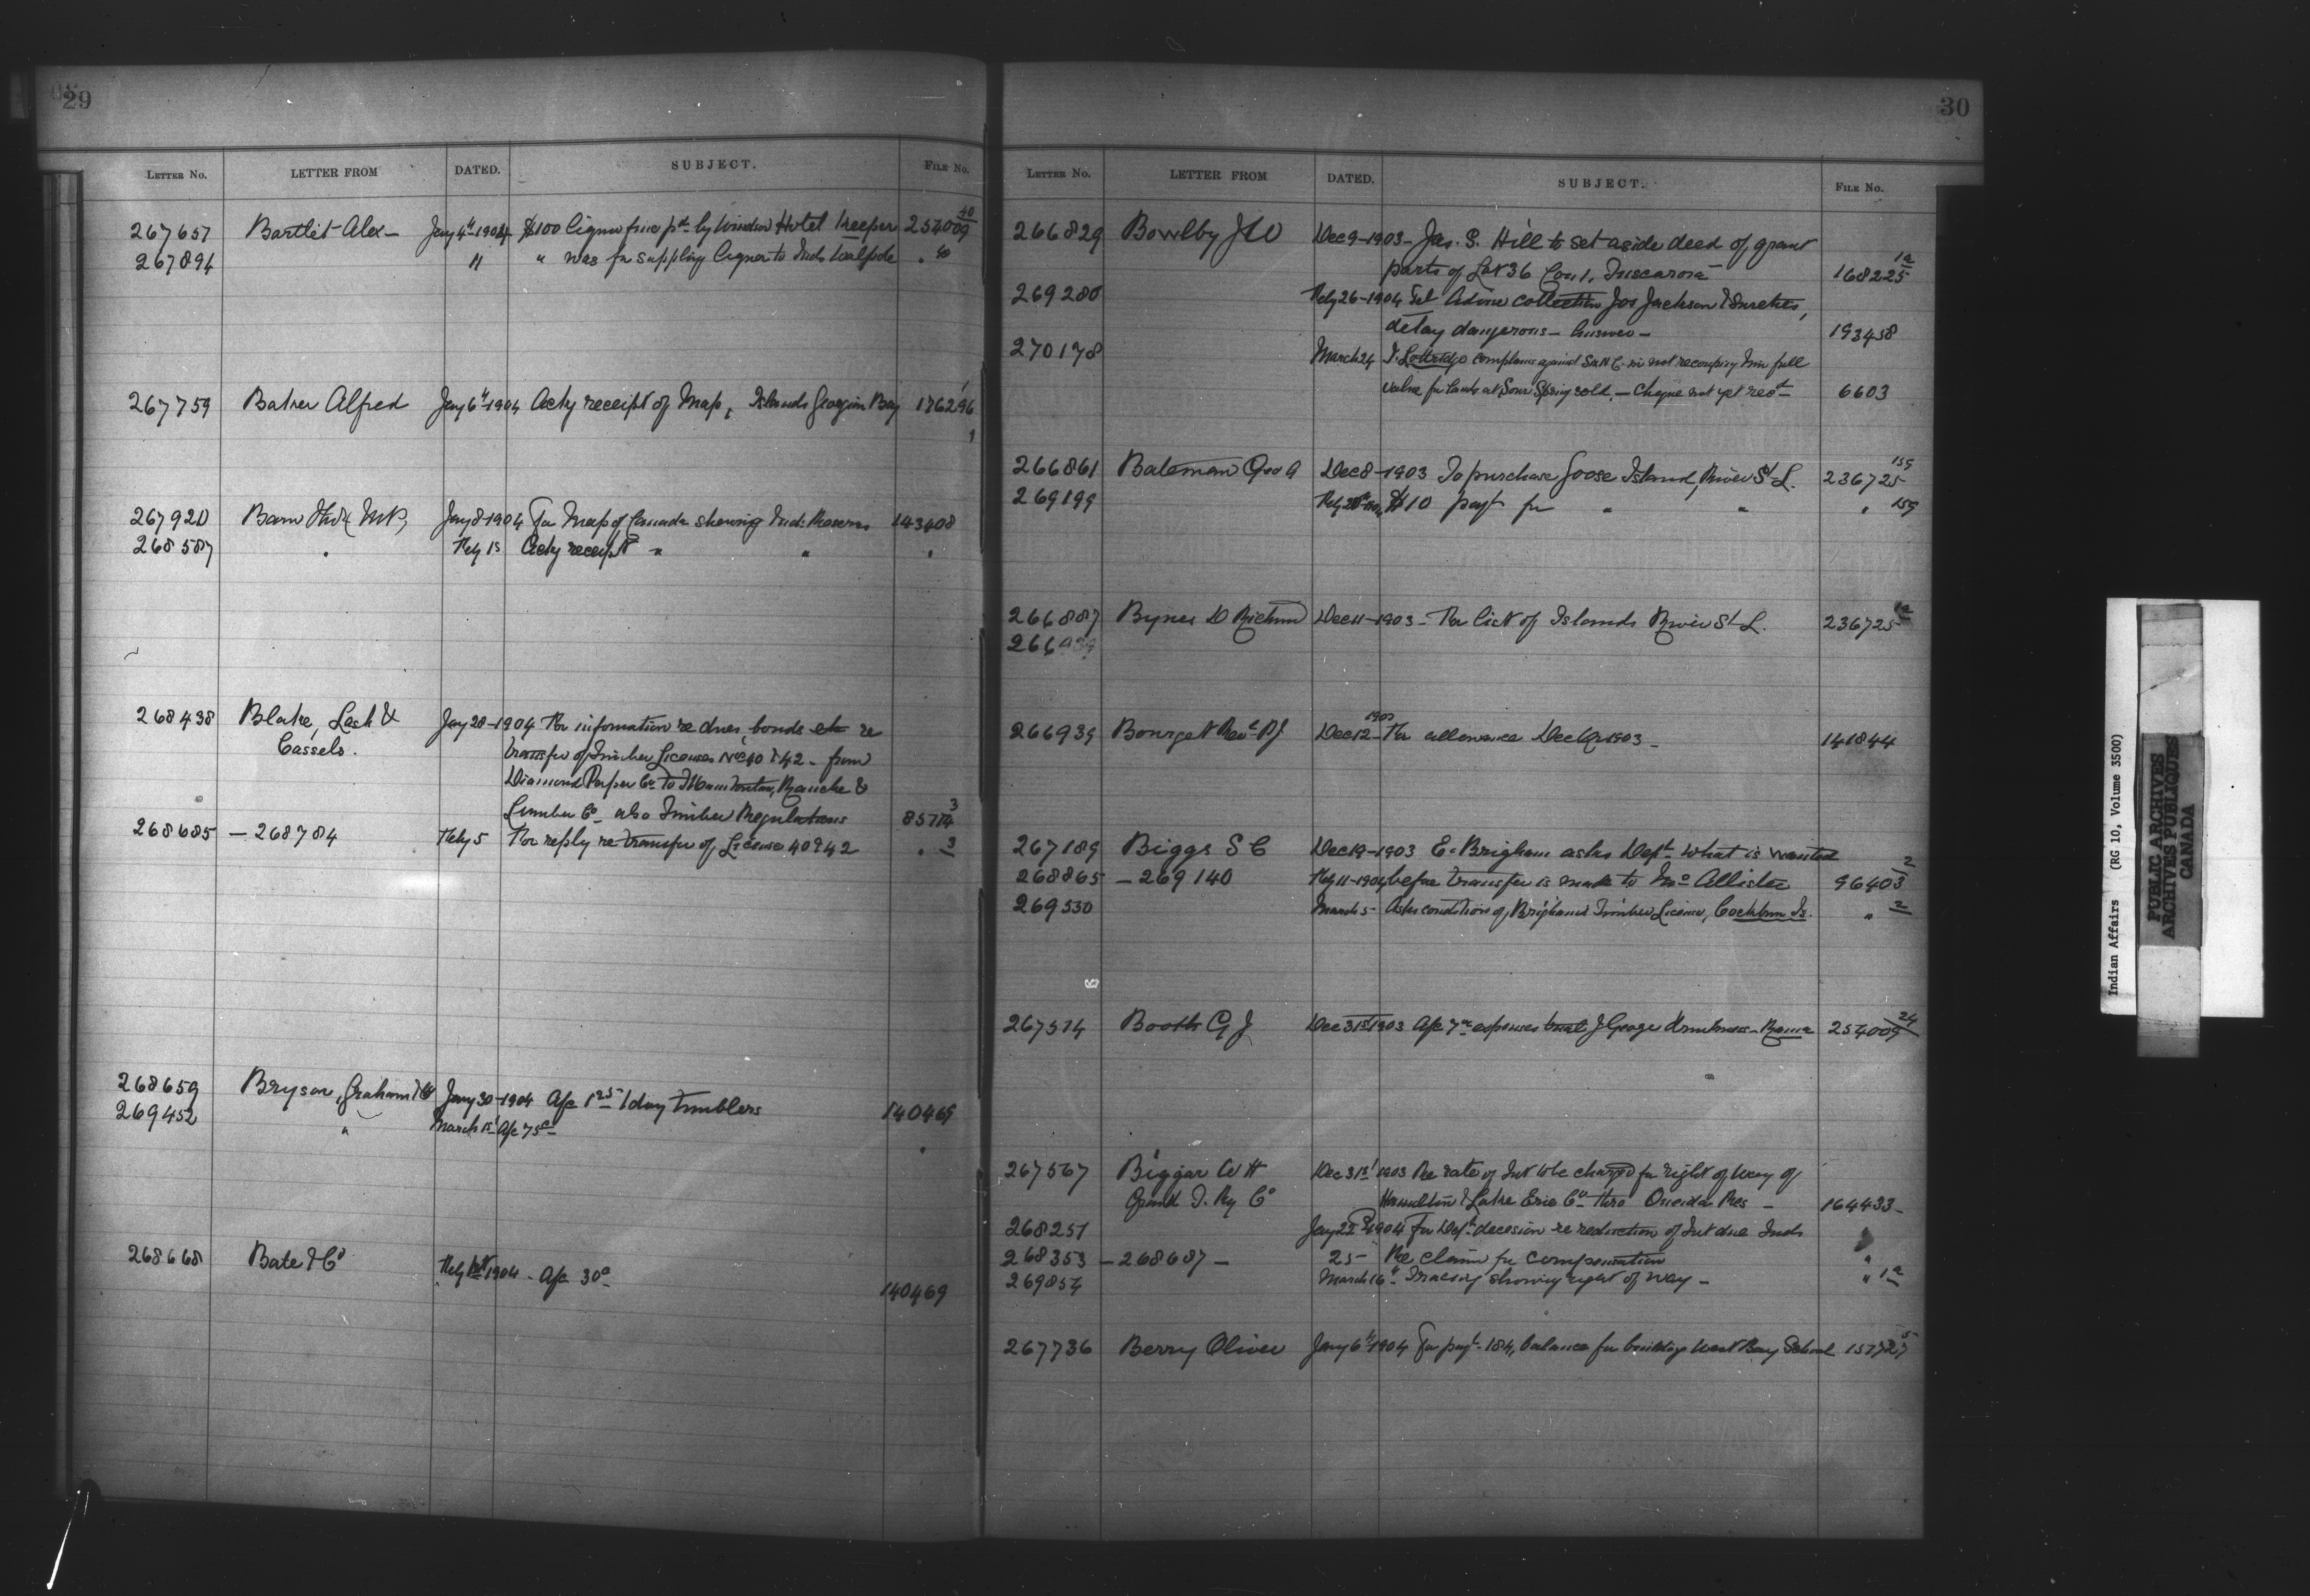 29
LETTER No. LETTER FROM DATED. SUBJECT. FILE No.
267657 Bartlet Alex – Jany 4th 1904 $100 liquor fine pd by Windsor Hotel Keeper 254009 40
267894 " " was for supplying liquor to Inds Walpole " 40
267759 Baker Alfred Jany 6th 1904 Ackg receipt of Map, Islands Georgian Bay 136296
267920 Barr MP, Jany 8–1904 For Map of Canada shewing Ind: Reserves 143408
268587 " Feby 1st Ackg receipt " " "
268438 Blake, Lash & Jany 28–1904 For information re dues, bonds etc re
Cassels. transfer of Timber Licenses Nos 40 & 42 – from
Diamond Paper Co. to Ranche &
Lumber Co – also Timber Regulations 3
268685 – 268784 Feby 5 For reply re transfer of License 40 & 42 " 3
268659 Bryson, Graham & Co Jany 30–1904 A/c 1.25 1 doz tumblers 140469
269452 " March 1st A/c 75c – "
268668 Bate & Co Feby 1st 1904 – A/c 30c 140469
30
LETTER No. LETTER FROM DATED. SUBJECT. FILE No.
266829 Bowlby J W Dec 9–1903 – Jas. S. Hill to set aside deed of grant
parts of Lot 36 Con 1, Tuscarora 168225 1a
269280 Feby 26–1904 Tel Advise collection Jos Jackson & Sureties,
delay dangerous – Answer – 193458
270178 March 24 complains against in not recouping him full
value for lands at Sour Spring sold, – Cheque not yet recd – 6603
266861 Bateman Geo A Dec 8–1903 To purchase Goose Island, River St L. 236725 159
269199 Feby $10 payt for " " " 159
266887 Bynes D Richmd Dec 11–1903 – For list of Islands River St L. 236725
266939
266939 Bourget Revd Dec 12 – 1903 For allowance Dec Qr 1903 – 141844
267189 Biggs S C Dec 19–1903 E. Brigham asks Dept what is wanted
268865 – 269140 Feby 11–1904 before transfer is made to McAllister 96403 2
269530 March 5 – Asks condition of Brigham's Timber License, Cockburn Is. " 2
267574 Booth G J Dec 31st 1903 A/c expenses trial J George drunkness – Rama 254009 24
267567 Biggar W H Dec 31st 1903 Re rate of Int to be charged for right of way of
Grand T. Ry Co Hamilton & Lake Erie Co – thro Oneida Res – 164433 –
268251 Jany 22nd 1904 For Depts decision re reduction of Int due Inds "
268353 – 268687 – 25 – Re claim for compensation "
269854 March 16th Tracing showing right of way – " 1a
267736 Berry Oliver Jany 6th 1904 For payt – 184, balance for building West Bay School 157727 5
Indian Affairs (RG 10, Volume 3500)
PUBLIC ARCHIVES
ARCHIVES PUBLIQUES
CANADA